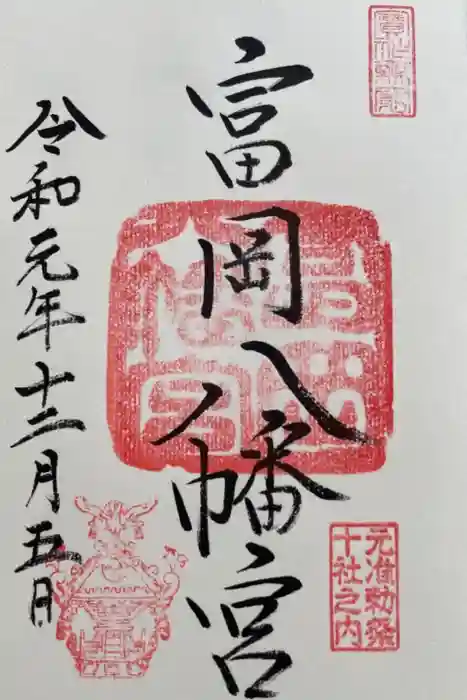 富岡八幡宮
元准勅祭
十社之内
令和元年十二月五日